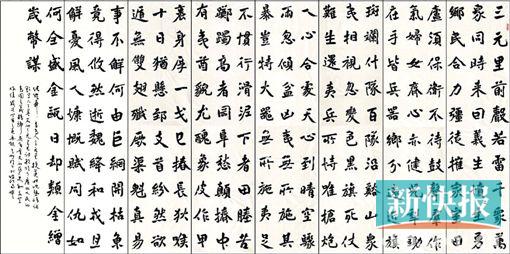 三元里前聲若雷千衆萬
衆同時來因義生憤憤生勇
鄉民合力彊徒摧家室田
廬須保衛不待鼓聲群作
氣婦女齊心亦健兒犂鋤
在手皆兵器鄉分遠近旗
斑斕什隊百隊沿溪山衆
夷相視忽變色黑旗死仗
難生還夷兵所恃惟槍炮
人心合處天心到晴空驟
雨忽傾盆凶夷無所施其
暴豈特火器無所施夷足
不慣行滑泥下者田塍苦
躑躅高者岡阜愁顛擠中
有夷酋貌尤醜象皮作甲
裹身厚一戈已摏長狄喉
十日猶懸郅支首紛然欲
遁無雙翅殲厥渠魁真易
事不解何由巨網開枯魚
竟得攸然逝魏絳和戎且
解憂風人慷慨賦同仇如
何全盛金甌日却類金繒
歲幣謀
新快报